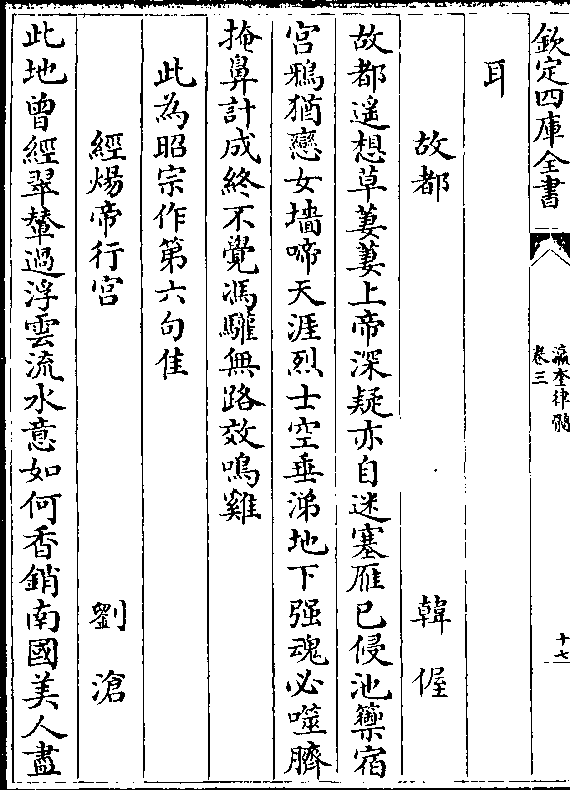 欽定四庫全書
瀛奎律髓
卷三
十七
耳
故都 韓偓
故都遥想草萋萋上帝深疑亦自迷塞雁已侵池籞宿
宮鴉猶戀女墻啼天涯烈士空垂涕地下强魂必噬臍
掩鼻計成終不覺馮驩無路效鳴雞
此為昭宗作第六句佳
經煬帝行宮 劉滄
此地曾經翠輦過浮雲流水意如何香銷南國美人盡